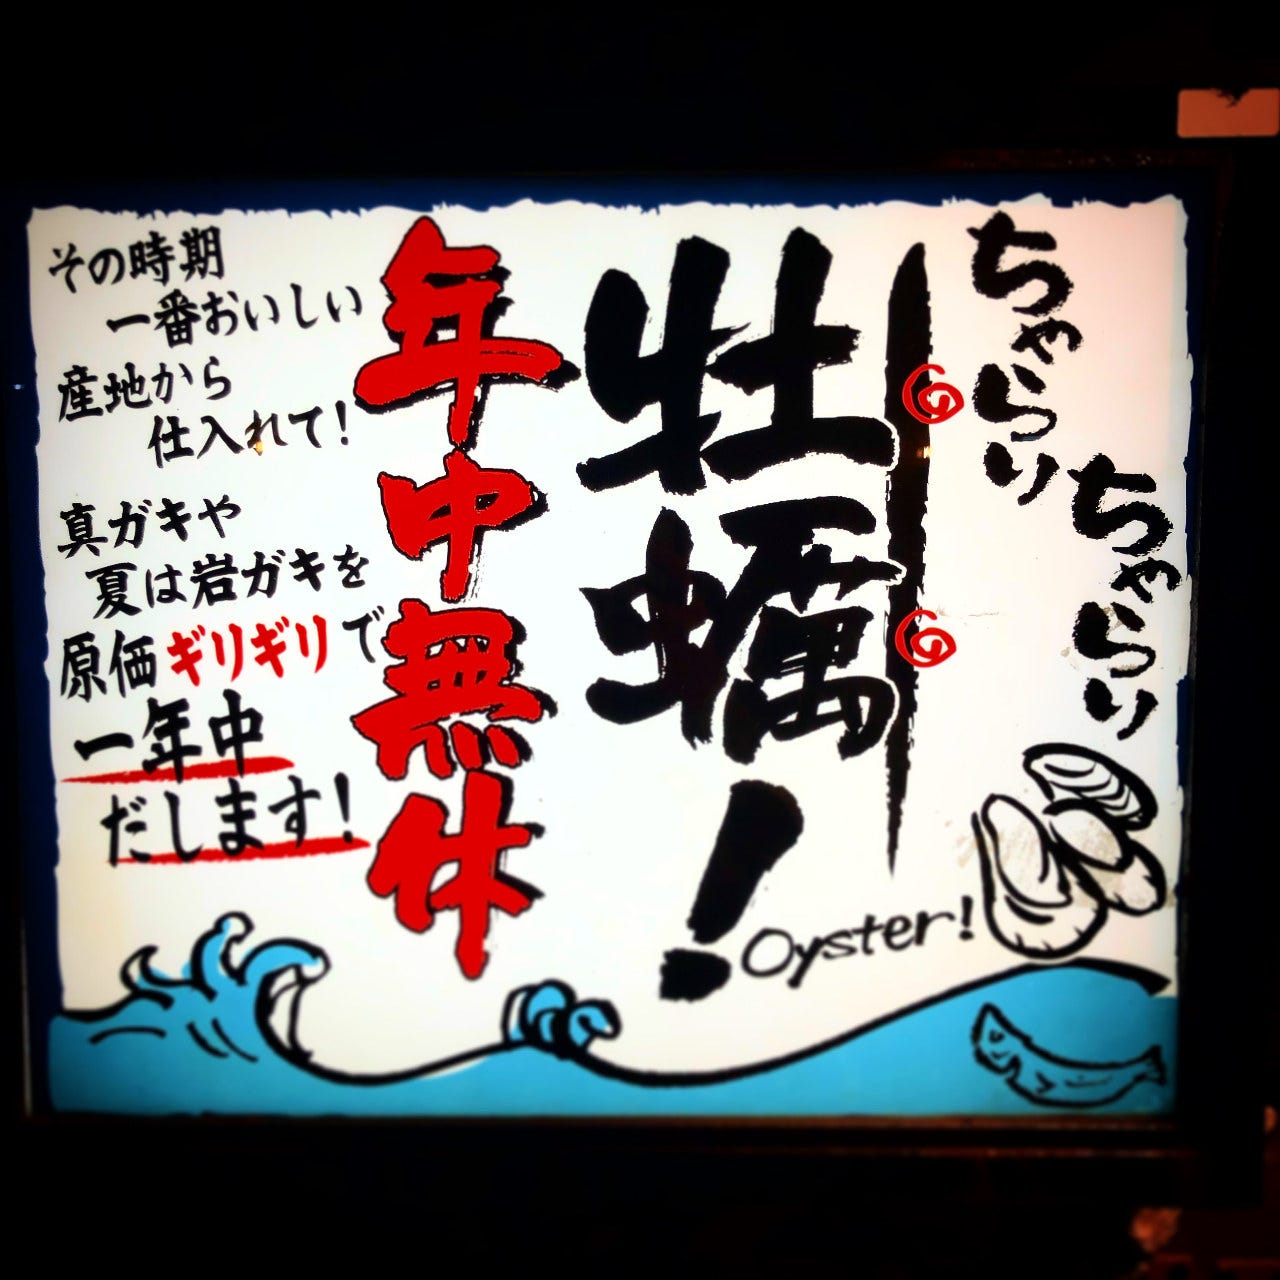 ちゃらり
ちゃらり
牡蠣！
Oyster!
年中無休
その時期
一番おいしい
産地から
仕入れて！
真ガキや
夏は岩ガキを
原価ギリギリで
一年中
だします！